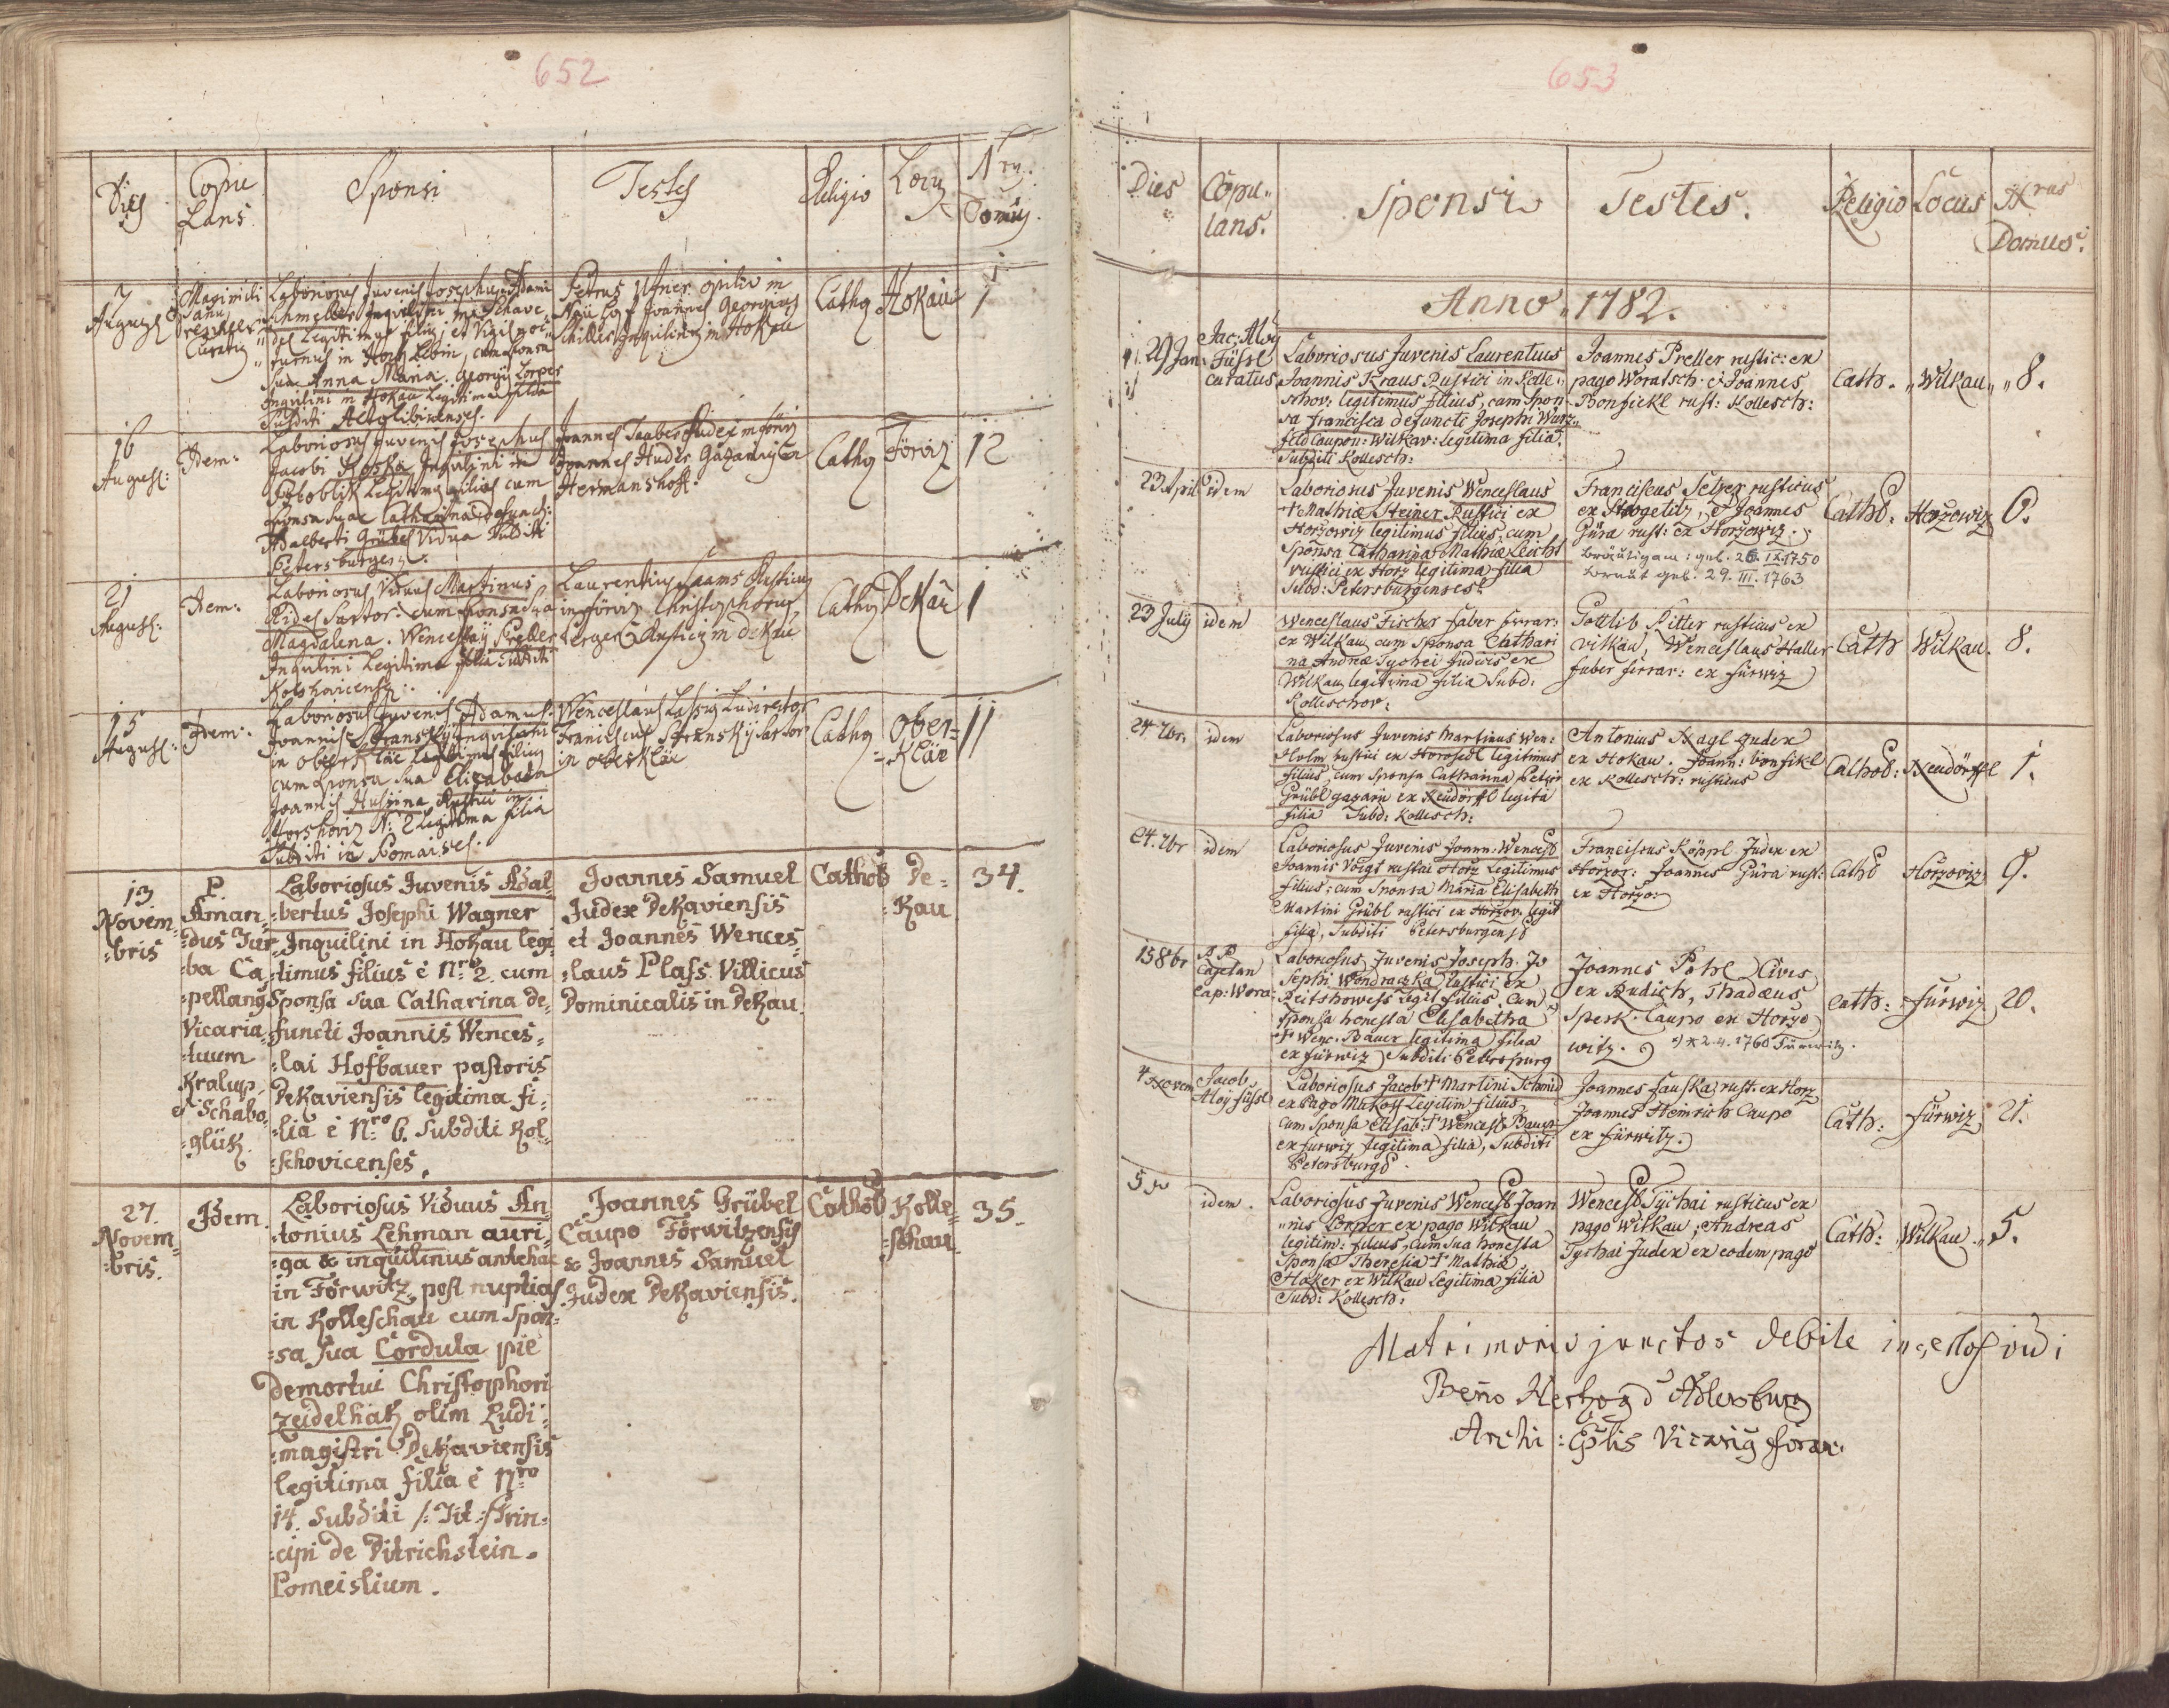 652
Dies
Copu
Lans
Sponsi
Testes
Religio
Locus
Domus
7
August
Laboriosus Juvenis Josephus Adami
Schmelles Inquilini in
legitimus filius et
in cum sponsa
sua Anna Maria. Georgii Lorper
Inquilini in Hokau Legitima filia
Subditi Altolibicenses.
Petrus opilio in
Joannes Georgius
Schilles Inquilinus in Hokau
Cathq
Hokau
1
16
August:
Idem:
Laboriosus Juvenis Josephus
Jacobi Koska Inquilini in
Legitimus filius cum
sponsa sua Catharina Defuncti
Adalberti Grübel Vidua Subditi
Petersburgens.
Joannes Tauber Judex in
Joannes Huder Gazarius in
Hermanshoff.
Cathq
Förviz
12
21
August:
Idem:
Laboriosus Viduus Martinus
Rides Sartor: cum sponsa sua
Magdalena. Wenceslaij Preller
Inquilini Legitima filia Subditi
Kolshovicenses.
Laurentius Saams Rusticus
in Förviz Christophorus
Lerger Rusticus in DeKau
Cathq
DeKau
1
15
August:
Idem:
Laboriosus Juvenis Adamus
Joannis Stransky Inquilini
in oberKlee Legitimus filius
cum sponsa sua Elizabetha
Joannis Husina Rustici in
Horshoviz N: 2 Legitima filia
Subditi in Pomaisel.
Wenceslaus Lassig Ludirector
Franciscus Strensky Sartor
in oberKlär
Cathq
Ober=
=Klär
11
13
Novem
=bris
P.
Aman=
=dus Jur=
=ba Ca=
=pellanus
Vicaria=
=tuum
Kralup.
et Schabo=
=glük.
Laboriosus Juvenis Adal=
=bertus Josephi Wagner
Inquilini in Hokau legi=
=timus filius è Nro 2. cum
Sponsa sua Catharina de=
functi Joannis Wences=
=lai Hofbauer pastoris
DeKaviensis legitima fi=
=lia è Nro 6. Subditi Kol=
=schovicenses.
Joannes Samuel
Judex DeKaviensis
et Joannes Wences=
=laus Plass Villicus
Dominicalis in DeKau.
Cathol
De=
=Kau
34.
27.
Novem=
=bris.
Idem.
Laboriosus Viduus An=
=tonius Lehman auri=
=ga & inquilinus antehac
in Förwitz, post nuptias
in Kolleschau cum Spon=
=sa sua Cordula pie
Demortui Christophori
Zeidelhak olim Ludi=
=magistri DeKaviensis
legitima filia è Nro
14. Subditi /: Tit: Prin=
=cipi de Ditrichstein.
Pomeislium.
Joannes Grübel
Caupo Förwitzensis
& Joannes Samuel
Judex DeKaviensis.
Cathol
Kolle=
=schau
35.
653
Dies
Copu=
lans.
Sponsi
Testes.
Religio
Locus
Nrus
Domus.
Anno 1782.
29 Jan.
Jac: Aloy
Füssl
curatus
Laboriosus Juvenis Laurentius
Joannis Kraus Rustici in Kolle=
schov: legitimus filius, cum Spon=
sa Francisca defuncti Josephi Wurz=
feld Caupon: Wilkav: legitima filia.
Subditi Kollesch:
Joannes Preller rustic: ex
pago Woratsch. et Joannes
Bonfickl rust: Kollesch:
Cath.
Wilkau
8.
23 April
idem
Laboriosus Juvenis Wenceslaus
† Mathiæ Steiner Rustici ex
Horzowiz legitimus filius, cum
Sponsa Catharina Mathiæ Leicht
rustici ex Horz legitima filia
Subd: Petersburgenses.
Franciscus Setzer rusticus
ex Strogetitz, et Joannes
Güra rust: ex Horzowiz.
Bräutigam: geb. 26. IX. 1750
Braut geb. 29. III. 1763
Catho:
Horzowiz
6.
23 July
idem
Wenceslaus Fischer faber ferrar:
ex Wilkau cum Sponsa Cathari
na Andreæ Tychei Judicis ex
Wilkau legitima filia Subd:
Kolleschov:
Gottlib Ritter rusticus ex
Wilkau, Wenceslaus Haller
faber ferrar: ex Fürwiz
Cath
Wilkau.
8.
24 7br.
idem
Laboriosus Juvenis Martinus Wen:
Holm rustici ex Horosedl legitimus
filius, cum Sponsa Catharina Petri
Grübl gazarii ex Neudörfl legita
filia Subd: Kollesch:
Antonius Nagl Judex
ex Hokau. Joann: Bonfikl
ex Kollesch: rusticus
Cathol:
Neudörffl
1.
24. 7br
idem
Laboriosus Juvenis Joann: Wencesl
Joannis Voigt rustici Horz Legitimus
filius: cum Sponsa Maria Elisabeth
Martini Grübl rustici ex Horzov. legit
filia, Subditi Petersburgens
Franciscus Köppl Judex ex
Horzov: Joannes Güra rust:
ex Horzo:
Catho
Horzoviz
9.
15 8br
R. P.
Cajetan
Cap: Wora
Laboriosus Juvenis Joseph. Jo
sephi Wondraczka Rustici ex
Reitshowess Legit filius. Cum
Sponsa honesta Elisabetha
† Wenc. Bauer legitima filia
ex fürwiz Subditi Petersburg
Joannes Pohl Cives
ex Rudich, Thadæus
Spesk. Caupo ex Horzo
witz.
*) * 2. 4. 1760 Fürwitz.
Cath:
Fürwiz
20.
4 Novem
Jacob
Aloy Füssl
Laboriosus Jacob † Martini Schmid
ex Pago Mukoss Legitim filius
cum Sponsa Elisab: † Wencesl Bauer
ex furwiz legitima filia, Subditi
Petersburg
Joannes Fauska rust: ex Horz
Joannes Heinrich Caupo
ex fürwitz.
Cath:
Fürwiz
21.
5
idem.
Laboriosus Juvenis Wencesl Joan
nis Lorper ex pago Wilkau
legitim: filius, cum sua honesta
Sponsa Theresia † Mathiæ
Haker ex Wilkau Legitima filia
Subd: Kollesch:
Wencesl Tychai rusticus ex
pago Wilkau; Andreas
Tychai Judex ex eodem pago
Cath:
Wilkau.
5.
Matrimonio junctos debite vidi
Beno Hertzog d Adlersburg
Archi: Eplis Vicarius foran.